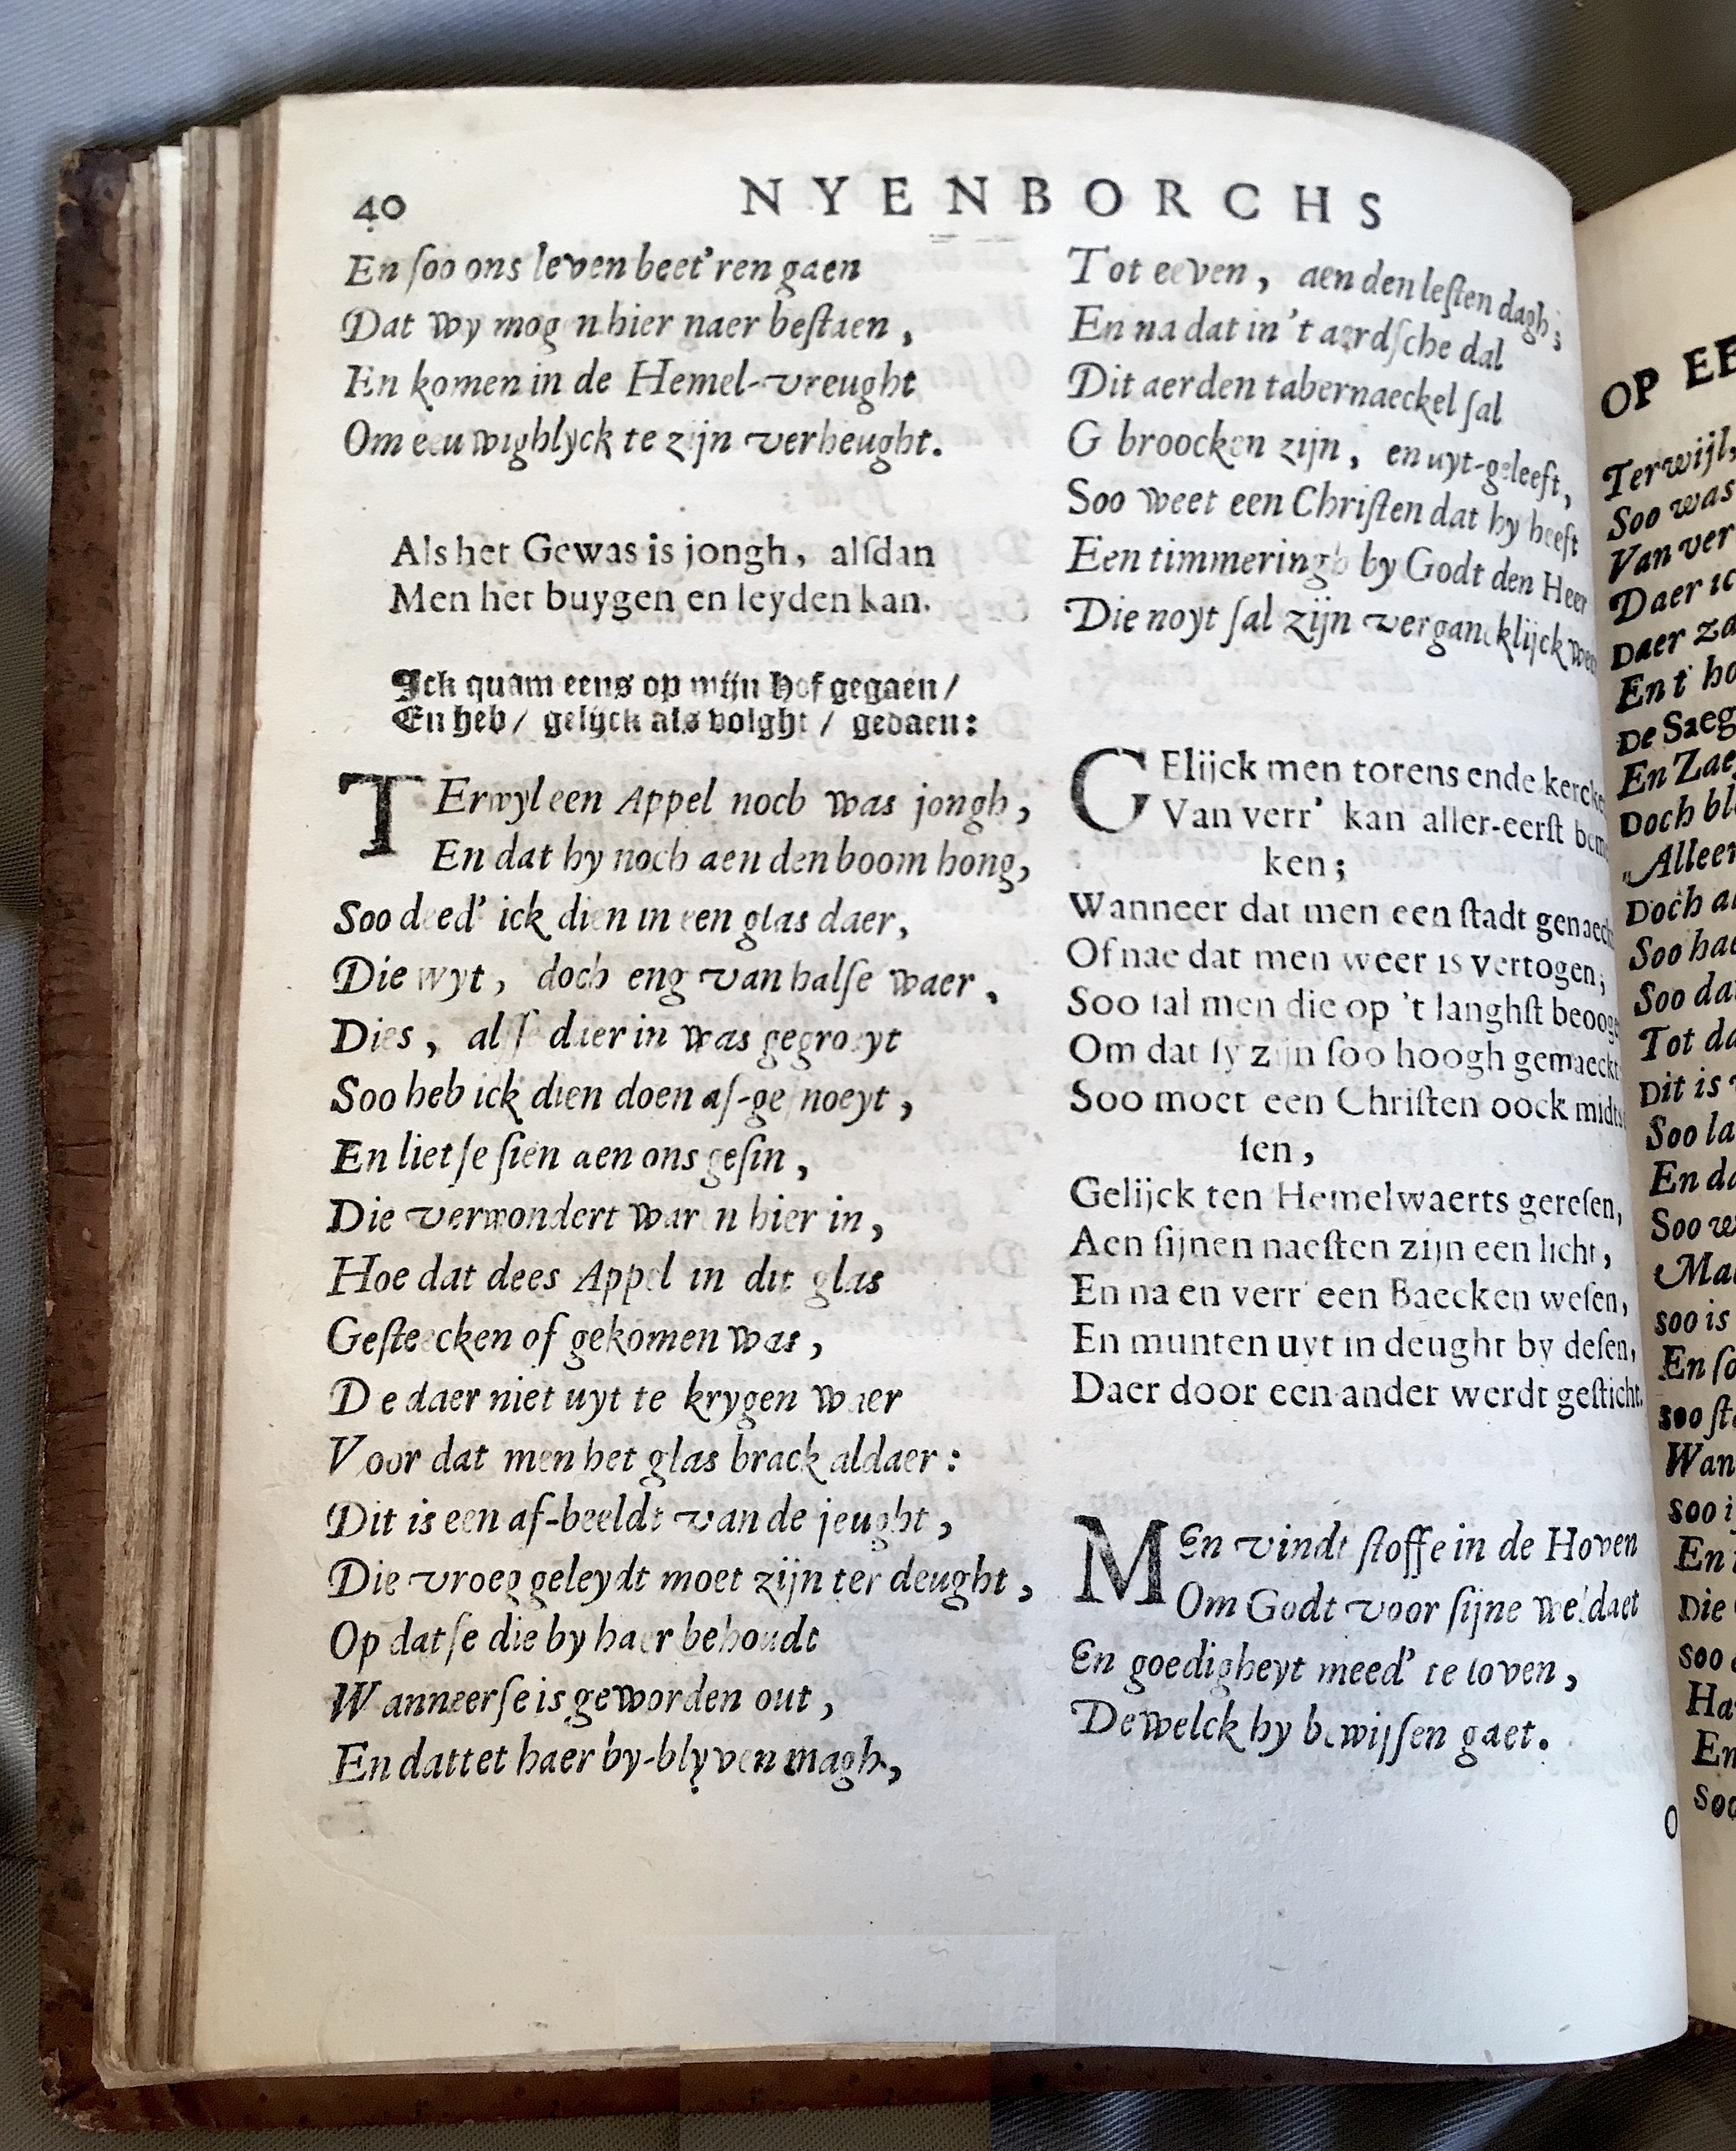 40
NYENBORCHS
En ſoo ons leven beet'ren gaen
Dat wy mog n hier naer beſtaen,
En komen in de Hemel-vreught
Om eeuwighlyck te zijn verheught.
Als het Gewas is jongh, alſdan
Men het buygen en leyden kan.
Ick quam eens op mijn Hof gegaen/
En heb/ gelijck als volght/ gedaen:
TErwyl een Appel noch was jongh,
En dat hy noch aen den boom hong,
Soo deed' ick dien in een glas daer,
Die wyt, doch eng van halſe waer,
Dies, alſ daer in was gegroeyt
Soo heb ick dien doen af-ge noeyt,
En liet ſe ſien aen ons geſin,
Die verwondert war n hier in,
Hoe dat dees Appel in dit glas
Geſteecken of gekomen was,
D e daer niet uyt te krygen waer
Voor dat men het glas brack aldaer:
Dit is een af-beeldt van de jeught,
Die vroeg geleydt moet zijn ter deught,
Op datſe die by haer behoudt
Wanneerſe is geworden out,
En dattet haer by-blyven magh,
Tot eeven, aen den leſten dagh;
En na dat in 't aerdſche dal
Dit aerden tabernaeckel ſal
G broocken zijn, en uyt-geleeft,
Soo weet een Chriſten dat hy heeft
Een timmeringh by Godt den Heer
Die noyt ſal zijn verganclijck
GElijck men torens ende kercke
Van verr' kan aller-eerſt
ken;
Wanneer dat men een ſtadt genaeck
Of nae dat men weer is vertogen;
Soo ſal men die op 't langhſt beooge
Om dat ſy zijn ſoo hoogh gemaeckt
Soo moet een Chriſten oock midts
ſen,
Gelijck ten Hemelwaerts gereſen,
Aen ſijnen naeſten zijn een licht,
En na en verr' een Baecken weſen,
En munten uyt in deught by deſen,
Daer door een ander werdt geſticht.
MEn vindt ſtoffe in de Hoven
Om Godt voor ſijne weldaet
En goedigheyt meed' te loven,
De welck hy bewijſſen gaet.
OP EE
Terwijl,
Soo was
Van ver
Daer ic
Daer za
En t' ho
De Saeg
En Zaeg
Doch bl
„Alleen
Doch al
Soo hae
Soo dat
Tot da
Dit is
Soo la
En da
Soo w
Maa
soo is
En ſo
soo ſt
Wan
soo i
En
Die
soo
Ha
En
Soo